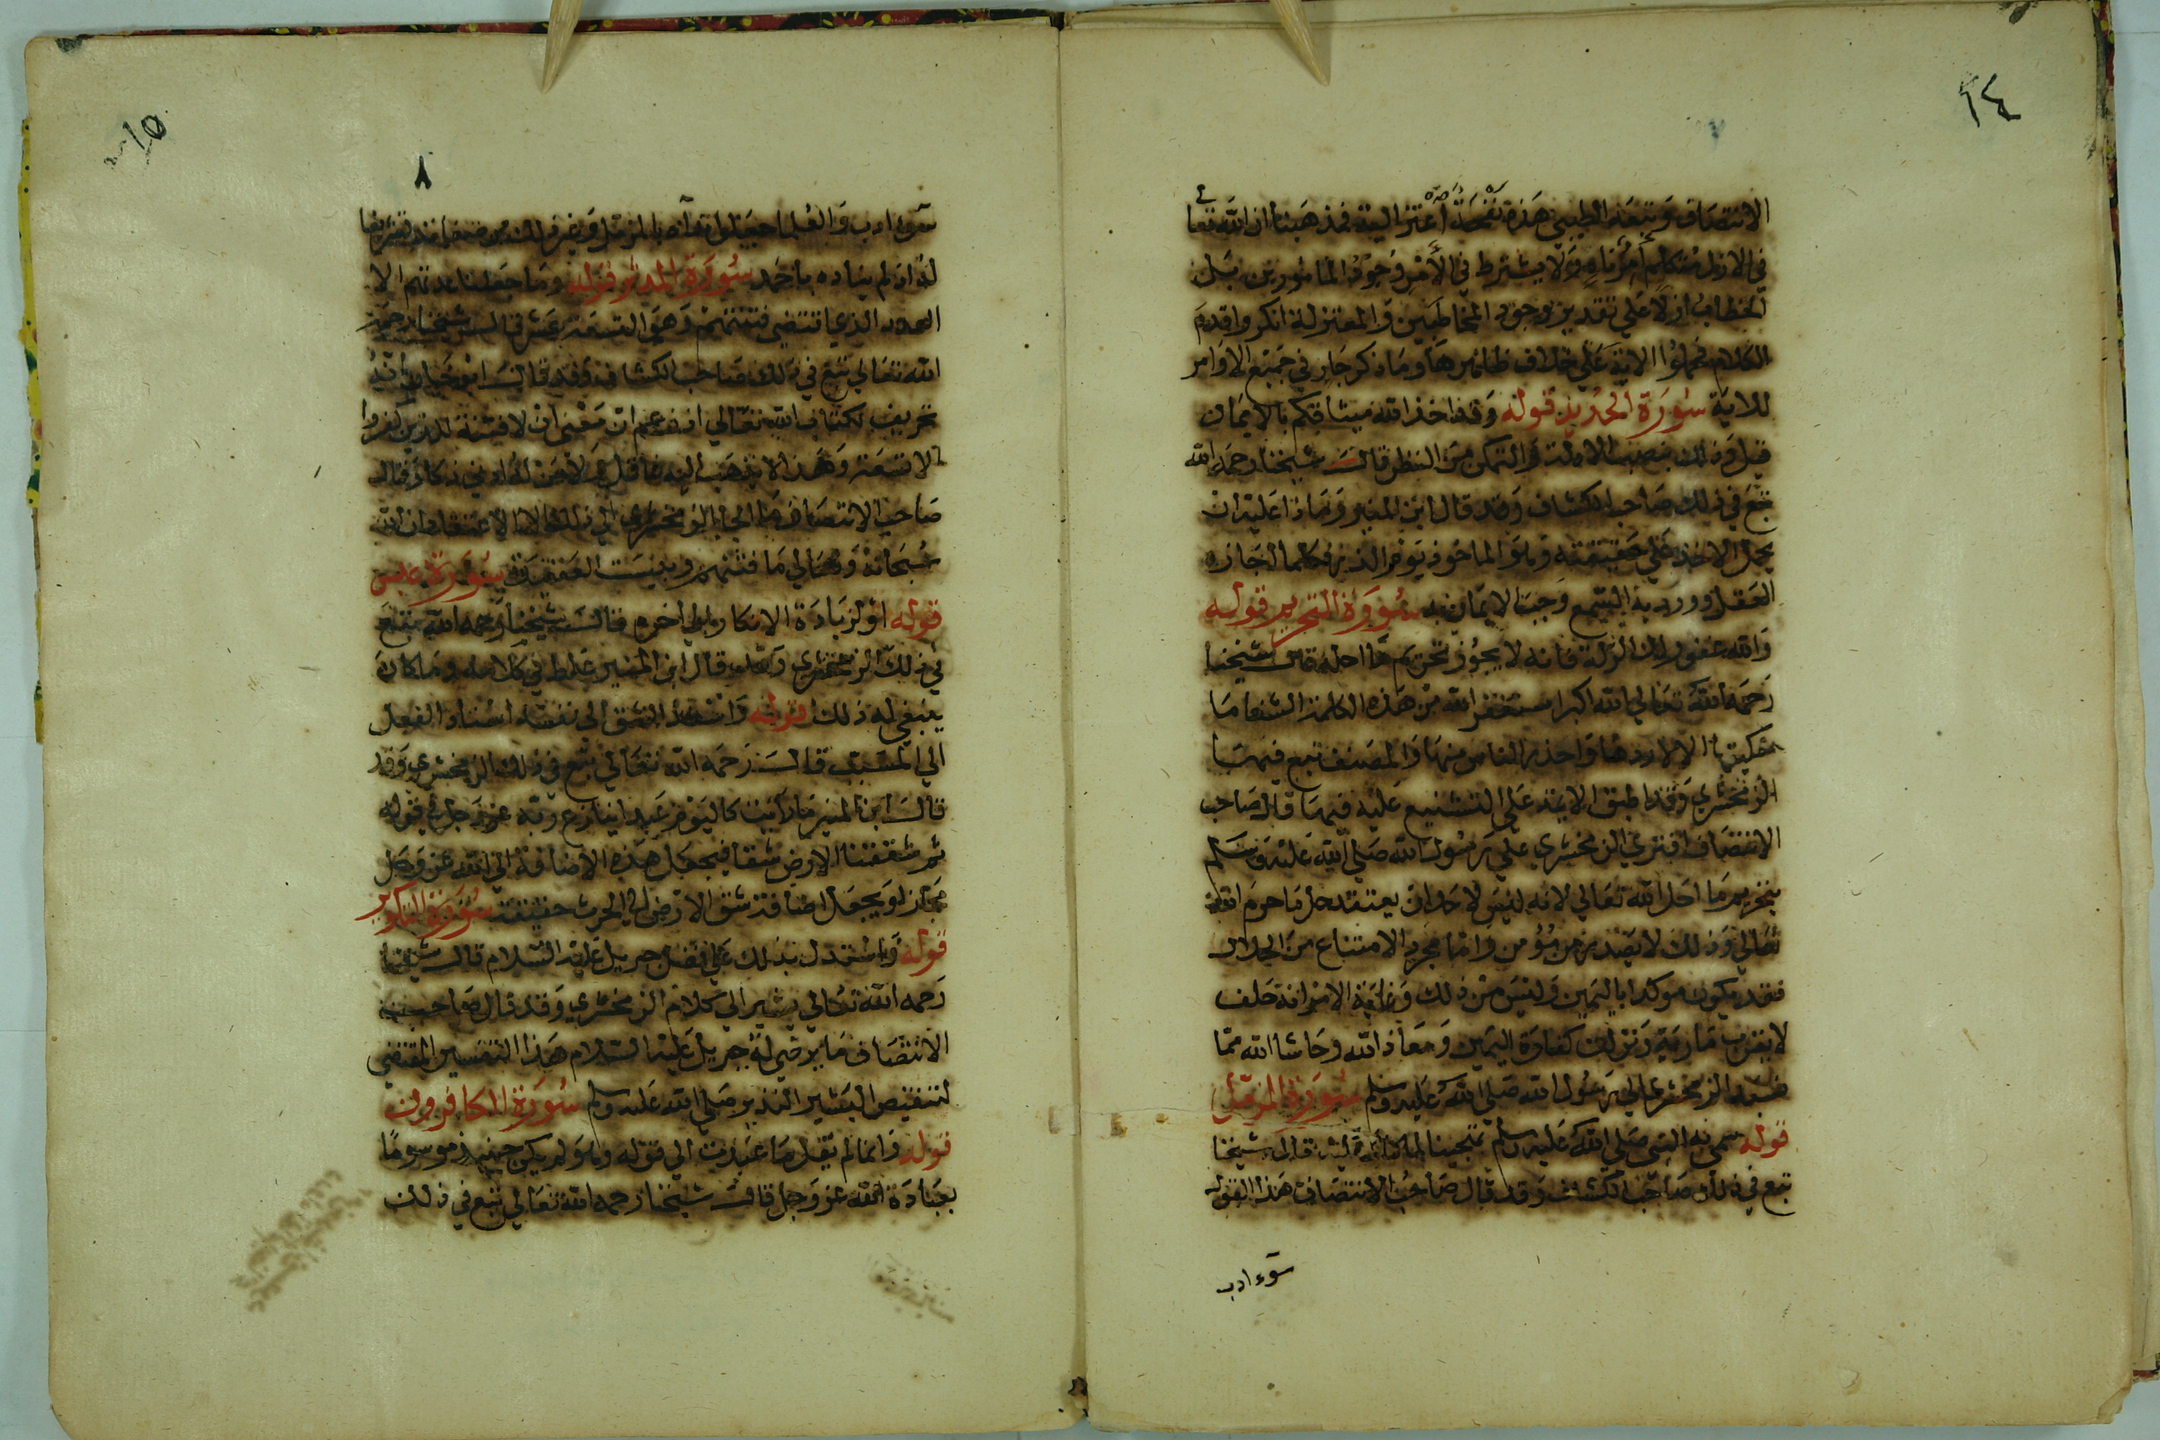 ١٤
الانتصاف وتبعه الطيبي هذه نفحة اعتزالية فمذهبنا ان الله تعالى
في الازل متكلم أمرناه ولا يشترط في الأمر وجود المامورين بل
الخطاب ازلا على تقدير وجود المخاطبين والمعتزلة انكروا قدم
الكلام فحملوا الاية على خلاف ظاهرها وما ذكر جار في جميع الاوامر
للاية سورة الحديد قوله وقد اخذ الله ميثاقكم بالايمان
قبل وذلك بنصب الادلة والتمكن من النظر قال شيخنا رحمه الله
تبع في ذلك صاحب الكشاف وقد قال ابن المنير وما ذا عليه ان
يحمل الاخذ على حقيقته وهو الماخوذ يوم الذر فكلما اجازه
العقل وورد به السمع وجب الايمان به سورة التحريم قوله
والله غفور لك الزلة فانه لا يجوز تحريم ما احله قال شيخنا
رحمه الله تعالى الله اكبر استغفر الله من هذه الكلمة الشنعا ما
حكيتها الا لاردها واحذر الناس منها والمصنف تبع فيها
الزمخشري وقد اطبق الايمة على التشنيع عليه فيها قال صاحب
الانتصاف افترى الزمخشري على رسول الله صلى الله عليه وسلم
بتحريم ما احل الله تعالى لانه ليس لاحد ان يعتقد حل ما حرم الله
تعالى وذلك لا يصدر من مؤمن وانما مجرد الامتناع من الحلال
فقد يكون موكدا باليمين وليس من ذلك وغاية الامر انه حلف
لا يقرب مارية ونزلت كفارة اليمين ومعاذ الله وحاشا الله مما
نسبه الزمخشري الى رسول الله صلى الله عليه وسلم سورة المزمل
قوله سمي به النبي صلى الله عليه وسلم تهجينا لما كان عليه قال شيخنا
تبع في ذلك صاحب الكشاف وقد قال صاحب الانتصاف هذا القول
سوء ادب
١٥
٨
سوء ادب والعلما جعلوا
له اذ لم يناده باحمد سورة المدثر قوله وما جعلنا عدتهم الا
العدد الذي اقتضى فتنتهم وهو التسعة عشر قال شيخنا رحمه
الله تعالى تبع في ذلك صاحب الكشاف وقد قال ابو حيان انه
تحريف لكتاب الله تعالى اذ زعم ان معنى الا فتنة للذين كفروا
الا تسعة وهذا لا يذهب اليه عاقل ولا من له ادنى ذكا وقال
صاحب الانتصاف ما الجا الزمخشري الى ذلك الا الاعتقاد ان الله
سبحانه وتعالى ما فتنهم وبيست العقيدة سورة عبس
قوله او لزيادة الانكار الى اخره قال شيخنا رحمه الله تبع
في ذلك الزمخشري وقد قال ابن المنير غلط في كلامه وما كان
ينبغي له ذلك قوله واسند الشق الى نفسه اسناد الفعل
الى المسبب قال رحمه الله تعالى تبع في ذلك الزمخشري وقد
قال ابن المنير ما رأيت كاليوم عبدا ينازع ربه عز وجل في قوله
ثم شققنا الارض شقا فيجعل هذه الاضافة الى الله عز وجل
مجازا ويجعل اضافة شق الارض الى الحرث حقيقة سورة التكوير
قوله واستدل بذلك على فضل جبريل عليه السلام قال شيخنا
رحمه الله تعالى يشير الى كلام الزمخشري وقد قال صاحب
الانتصاف ما يرضى له جبريل عليه السلام هذا التفسير المقتضي
لتنقيص البشير النذير صلى الله عليه وسلم سورة الكافرون
قوله وانما لم يقل ما عبدت الى قوله وهو لم يكن حينيذ موسوما
بعبادة الله عز وجل قال شيخنا رحمه الله تعالى تبع في ذلك